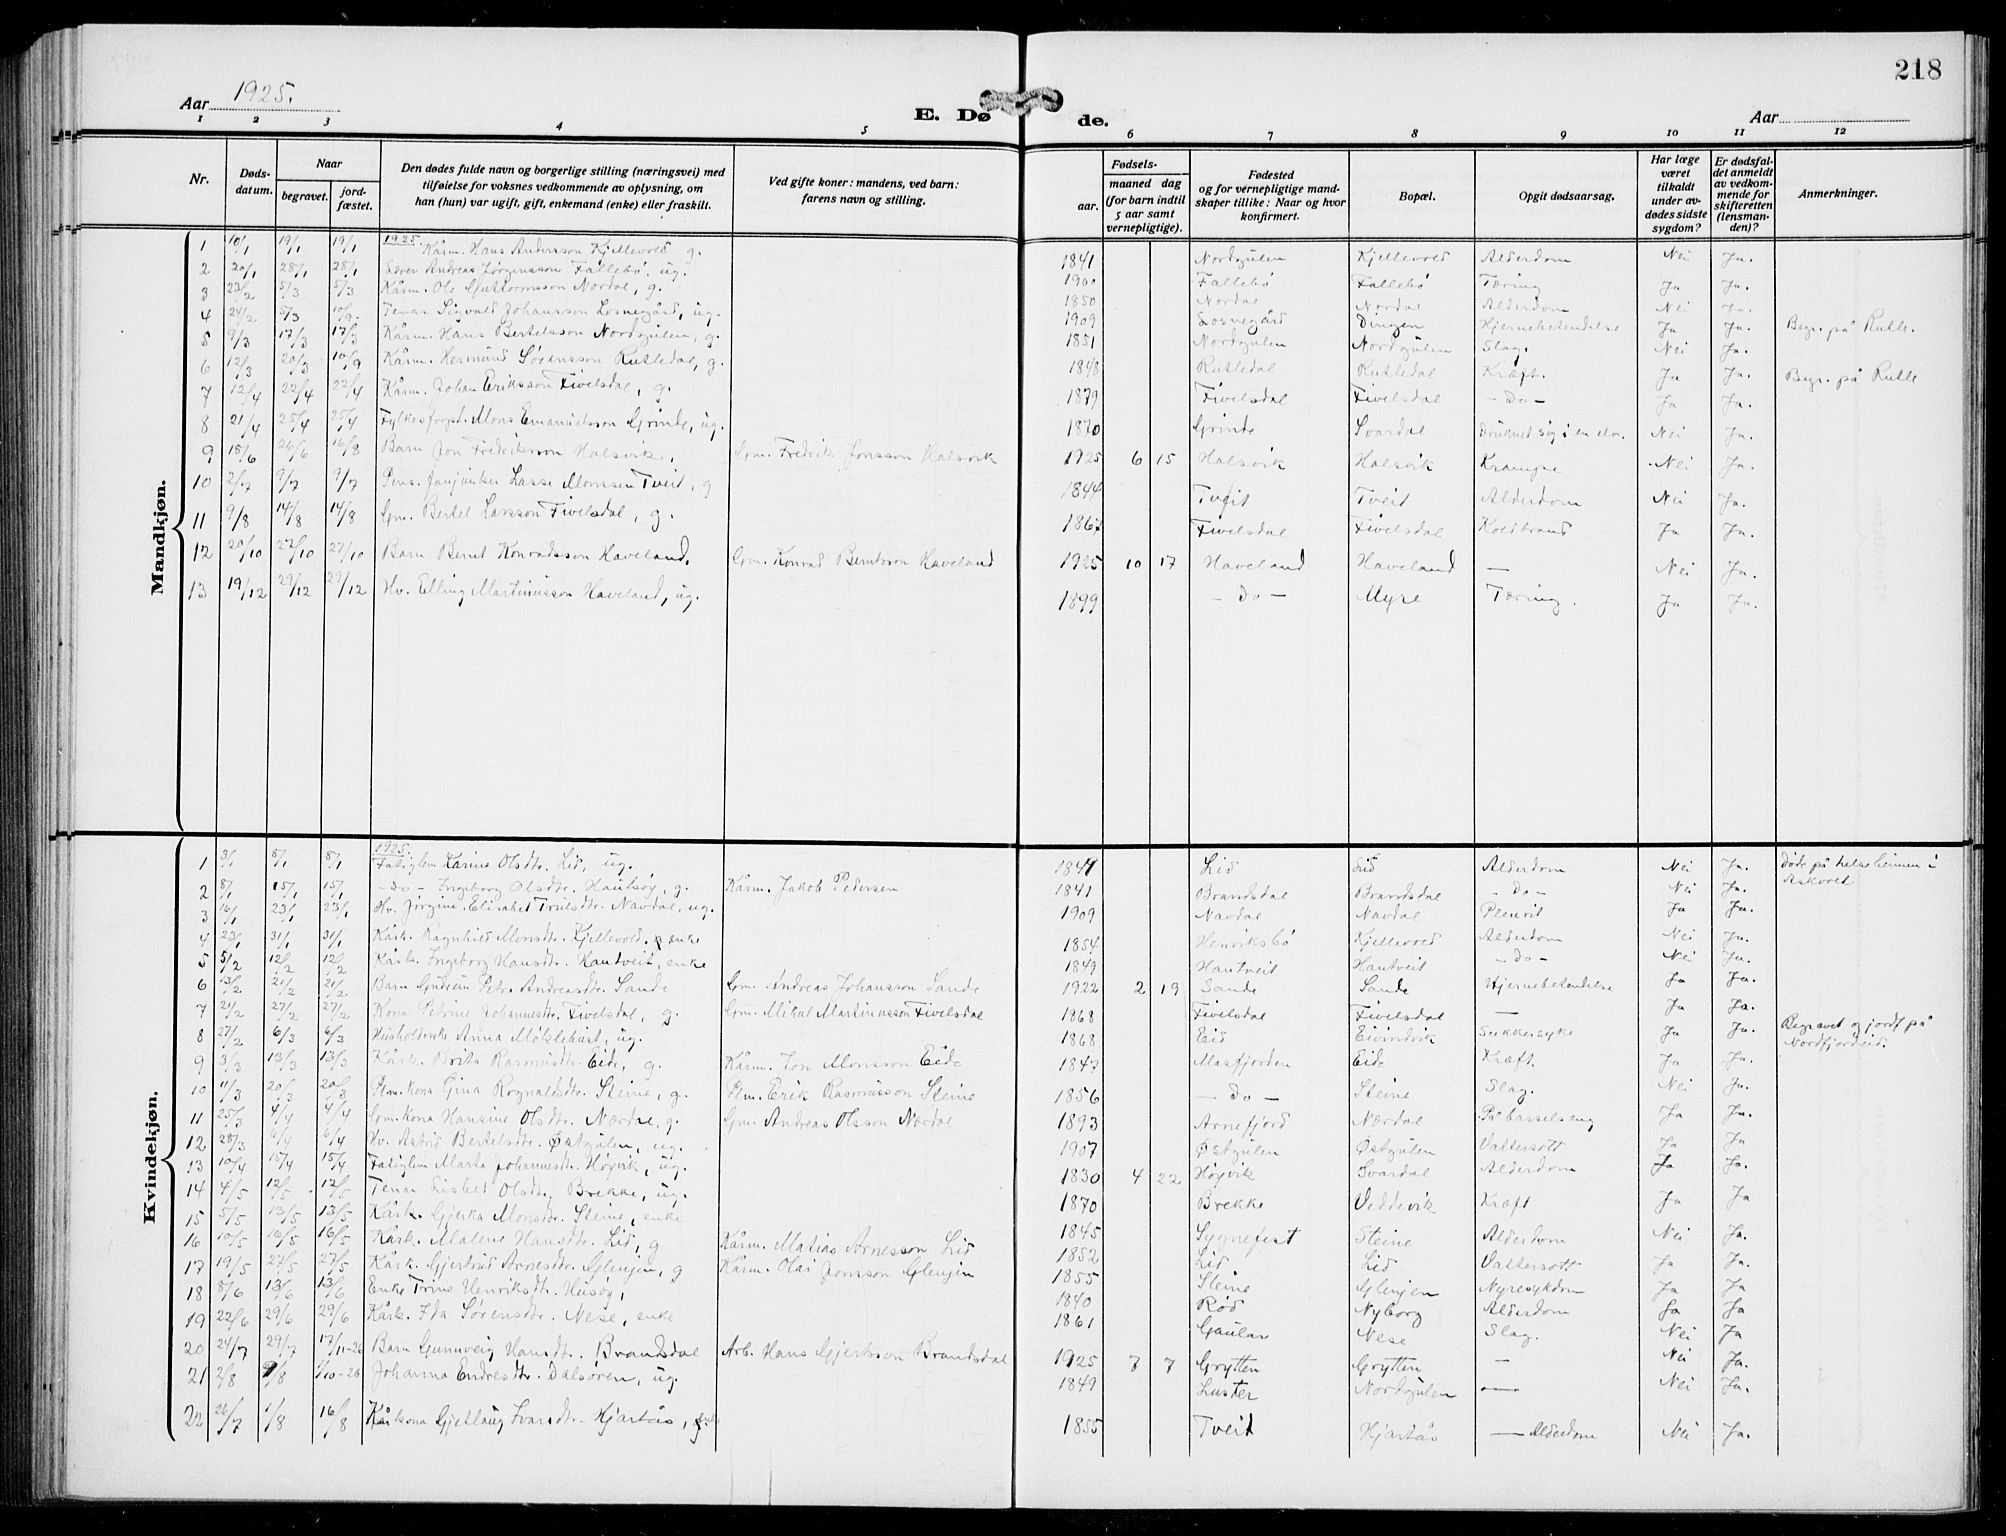 218
Aar 1925.
E. Døde.
Aar
1 2 3 4 5 6 7 8 9 10 11 12
Nr.
Døds-datum.
Naar
begravet.
jord-fæstet.
Den dødes fulde navn og borgerlige stilling (næringsvei) med tilføielse for voksnes vedkommende av oplysning, om han (hun) var ugift, gift, enkemand (enke) eller fraskilt.
Ved gifte koner: mandens, ved barn: farens navn og stilling.
Fødsels-
aar.
maaned dag
(for barn indtil 5 aar samt vernepligtige).
Fødested og for vernepligtige mandskaper tillike: Naar og hvor konfirmert.
Bopæl.
Opgit dødsaarsag.
Har læge været tilkaldt under avdødes sidste sygdom?
Er dødsfaldet anmeldt av vedkommende for skifteretten (lensmanden)?
Anmerkninger.
Mandkjøn.
1925.
1 10/1 19/1 19/1 Kårm. Hans Andersson Kjellevold g. 1841 Nordgulen Kjellevold Alderdom Nei Ja.
2 20/1 28/1 28/1 Andreas Jørgensson Fallebø, ug. 1900 Fallebø Fallebø Tæring Ja Ja.
3 23/2 5/3 5/3 Kårm. Ole Guttormsson Nordal, g. 1850 Nordal Nordal Alderdom Nei Ja.
4 24/2 5/3 10/9 Tenar Sigvald Johansson Losnegård, ug. 1909 Losnegård Dingen Hjernebetendelse Ja Ja. Begr. på Rutle.
5 9/3 17/3 17/3 Kårm. Hans Bertelsson Nordgulen, g. 1851 Nordgulen Nordgulen Slag. Nei Ja.
6 12/3 20/3 10/9 Kårm. Hermund Sørensson Rutledal, g. 1848 Rutledal Rutledal Kræft. Ja Ja. Begr. på Rutle
7 12/4 22/4 22/4 Kårm. Johan Eriksson Fivelsdal, g. 1879 Fivelsdal Fivelsdal - Do - Ja Ja.
8 21/4 25/4 25/4 Fylkesforpl. Mons Emanuelsson Grinde, ug. 1870 Grinde Svardal Druknet sig i en elv. Nei Ja.
9 18/6 26/6 16/8 Barn Jon Fredriksson Halsvik, Gm. Fredrik Jonsson Halsvik 1925 6 15 Halsvik Halsvik Krampe Nei Ja.
10 2/7 9/7 9/7 Pens. Lasse Monssen Tveit, g 1844 Tveit Tveit Alderdom Nei Ja.
11 9/8 14/8 14/8 Gm. Bertel Larsson Fivelsdal, g. 1867 Fivelsdal Fivelsdal Koldbrand Ja Ja.
12 20/10 27/10 27/10 Barn Bernt Konradsson Haveland. Gm. Konrad Berntsson Haveland 1925 10 17 Haveland Haveland — Nei Ja.
13 19/12 29/12 29/12 Hv. Elling Martinusson Haveland, ug. 1899 - Do - Myre Tæring. Ja Ja.
Kvindekjøn.
1925.
1 3/1 8/1 8/1 Fatiglem Karine Olsdtr. Lid, ug. 1841 Lid Lid Alderdom Nei Ja. Døde på helseheimen i Askvoll
2 8/1 15/1 15/1 - Do - Ingeborg Olsdtr. Hautsøy, g. Kårm. Jakob Pedersen 1841 Brandsdal Brandsdal - Do - Nei Ja.
3 16/1 23/1 23/1 Hv. Jørgine Elisabet Trulsdtr. Navdal, ug. 1909 Navdal Navdal Pleurit Ja Ja.
4 23/1 31/1 31/1 Kårk. Ragnhild Monsdtr. Kjellevold, enke 1854 Henriksbø Kjellevold Alderdom Nei Ja.
5 5/2 12/2 12/2 Kårk. Ingeborg Hansdtr. Hantveit, enke 1849 Hantveit Hantveit - Do - Nei Ja.
6 13/2 21/2 21/2 Barn Gudrun Petra Andreasdtr. Sande Gm. Andreas Johansson Sande 1922 2 19 Sande Sande Hjernebetendelse Ja Ja.
7 21/2 27/2 27/2 Kona Petrine Johannesdtr. Fivelsdal, g. Gm. Mikal Martinusson Fivelsdal 1868 Fivelsdal Fivelsdal — Ja Ja.
8 27/2 6/3 6/3 Husholderske Anna Myklebust, ug. 1868 Eid Eivindvik Sukkersyke Ja Ja. Begravet og jordf på Nordfjordeid.
9 3/3 13/3 13/3 Kårk. Brita Rasmusdtr. Eide, g. Kårm. Jon Monsson Eide 1847 Masfjorden Eide Kræft. Ja Ja.
10 11/3 20/3 20/3 Plm. kona Gina Rognaldsdtr. Steine, g. Plm. Erik Rasmusson Steine 1856 - Do - Steine Slag. Nei Ja.
11 25/3 4/4 4/4 Gm. kona Hansine Olsdtr. Nærdal, g. Gm. Andreas Olsson Nærdal 1893 Arnefjord Nærdal På barselseng Ja Ja.
12 28/3 6/4 6/4 Hv. Astrid Bertelsdtr. Østgulen, ug. 1907 Østgulen Østgulen Vattersott Ja Ja
13 10/4 15/4 15/4 Fatiglem Marta Johannesdtr. Høyvik, ug. 1830 4 22 Høyvik Svardal Alderdom Ja Ja.
14 4/5 12/5 12/5 Tenar Lisbet Olsdtr. Brekke, ug. 1870 Brekke Veddevik Kræft Ja Ja
15 5/5 13/5 13/5 Kårk. Gjerta Monsdtr. Steine, enke 1845 Sygnefest Steine Alderdom Nei Ja.
16 10/5 16/5 16/5 Kårk. Malene Hansdtr. Lid, g Kårm. Matias Arnesson Lid 1852 Lid Lid Vattersott Ja Ja.
17 19/5 27/5 27/5 Kårk. Gjertrud Arnesdtr. Glenjen, g Kårm. Olai Jonsson Glenjen 1855 Steine Glenjen Nyresykdom Ja Ja
18 8/6 13/6 13/6 Enke Trine Henriksdtr. Husøy, 1840 Rød Nyborg Alderdom Ja Ja
19 22/6 29/6 29/6 Kårk. Ida Sørensdtr. Nese, enke 1861 Gaular Nese Slag. Nei Ja
20 24/7 29/7 17/11-26 Barn Gunnveig Hansdtr. Brandsdal Arb. Hans Gjertsson Brandsdal 1925 7 7 Grytten Grytten — Nei Ja.
21 2/8 9/8 1/10-26 Johanna Endresdtr. Dalsøren, ug. 1849 Luster Nordgulen — Nei Ja.
22 26/7 1/8 16/8 Kårkona Gjellaug Ivarsdtr. Hjartås, 1855 Tveit Hjartås — Alderdom Nei Ja.